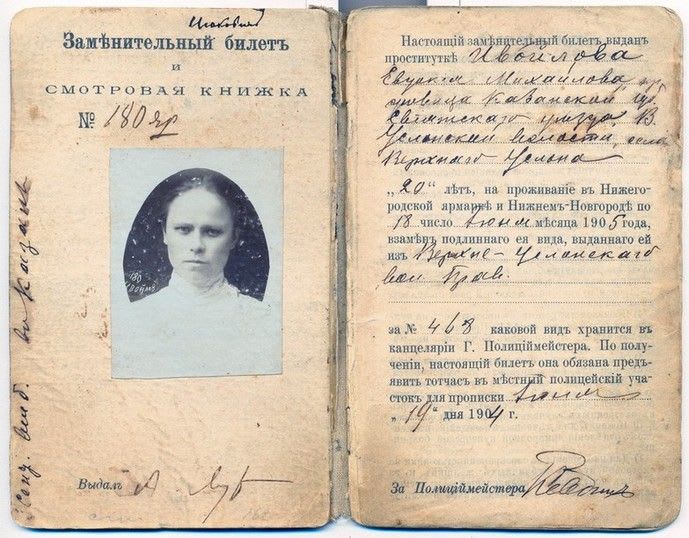 Замѣнительный билетъ
и
СМОТРОВАЯ КНИЖКА
№ 180 яр
180
Выдалъ
въ Казань
Настоящій замѣнительный билетъ выданъ
проституткѣ Ивойлова
Евдокія Михайлова
Казанской губ.
Свіяжскаго уѣзда, В.
Услонской волости, села
Верхняго Услона
„20" лѣтъ, на проживаніе въ Нижего-
родской ярмаркѣ и Нижнемъ-Новгородѣ по
18 число Іюня мѣсяца 1905 года,
взамѣнъ подлиннаго ея вида, выданнаго ей
изъ Верхне-Услонскаго
вол. Прав.
за № 468 каковой видъ хранится въ
канцеляріи Г. Полиціймейстера. По полу-
ченіи, настоящій билетъ она обязана предъ-
явить тотчасъ въ мѣстный полицейскій уча-
стокъ для прописки Іюня
„19" дня 1904 г.
За Полиціймейстера